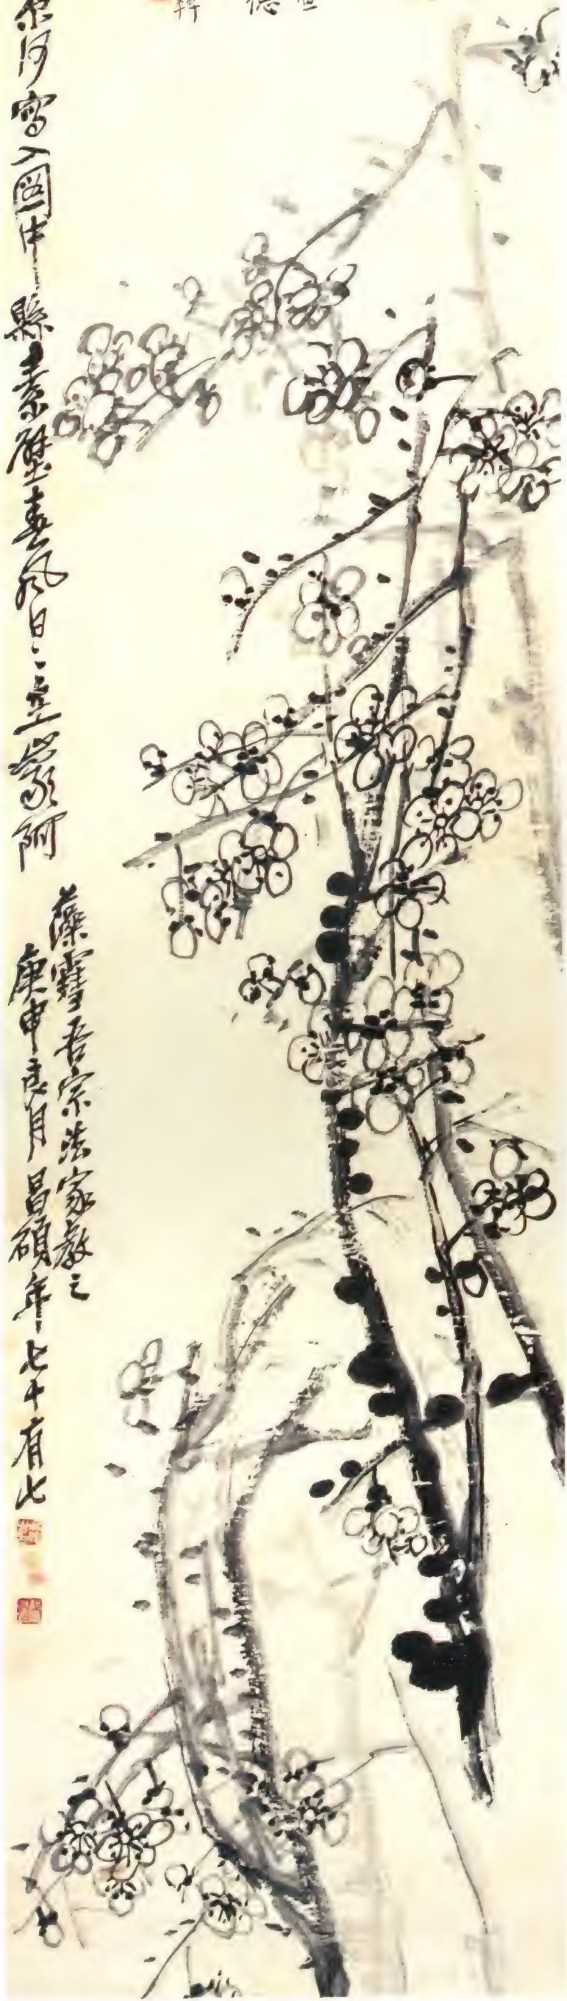 寫入圖中縣素壁春風日〻坐巖阿
藻吾宗法家教之
庚申良月昌碩年七十有七